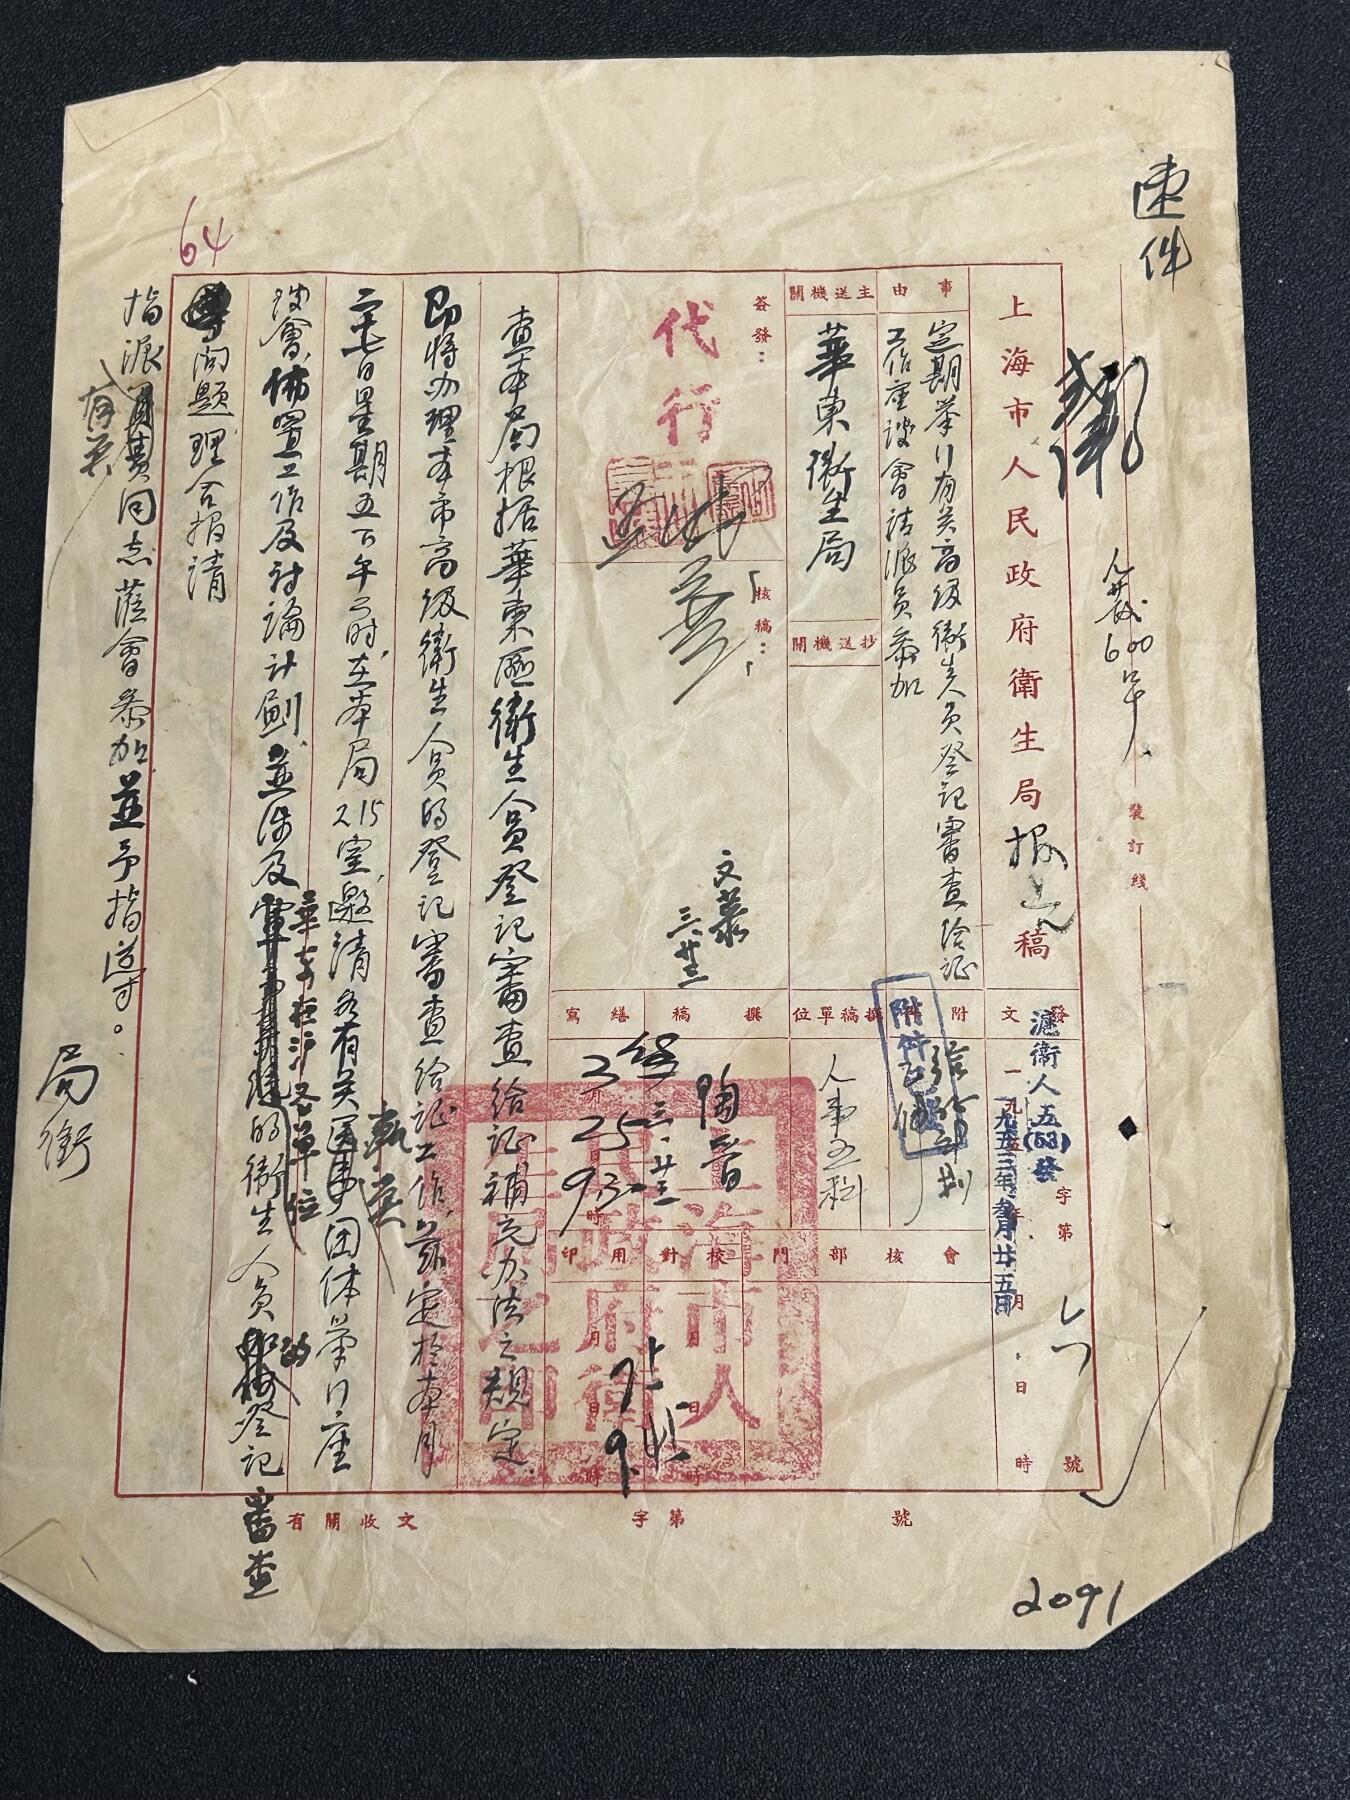 速件
裝訂綫
上海市人民政府衛生局報告稿
發文
滬衛人五(53)發
字第
號
一九五三年叁月廿五日
月
日
時
事由
定期举行有关高级衛生人员登记審查给证
工作座谈會请派员参加
附件
附件已備
主送機關
華東衛生局
抄送機關
撰稿單位
人事五科
會核部門
簽發：
代行
核稿：
文蓁
三.廿三
撰稿
陶
三.廿三
繕寫
3月25日9时
校對
月
日
時
用印
月
日
時
查本局根据華東區衛生人员登记審查给证補充办法之规定
即将办理本市高级衛生人员的登记審查给证工作，兹定於本月
二十七日星期五下午二时，在本局215室，邀请各有关医事团体举行座
谈會，佈置工作及讨論计劃，並涉及華东在沪各單位的衛生人员的登记審查
等问题，理合报请
指派有关同志蒞會参加，並予指导。
局銜
有關收文
字第
號
64
2091